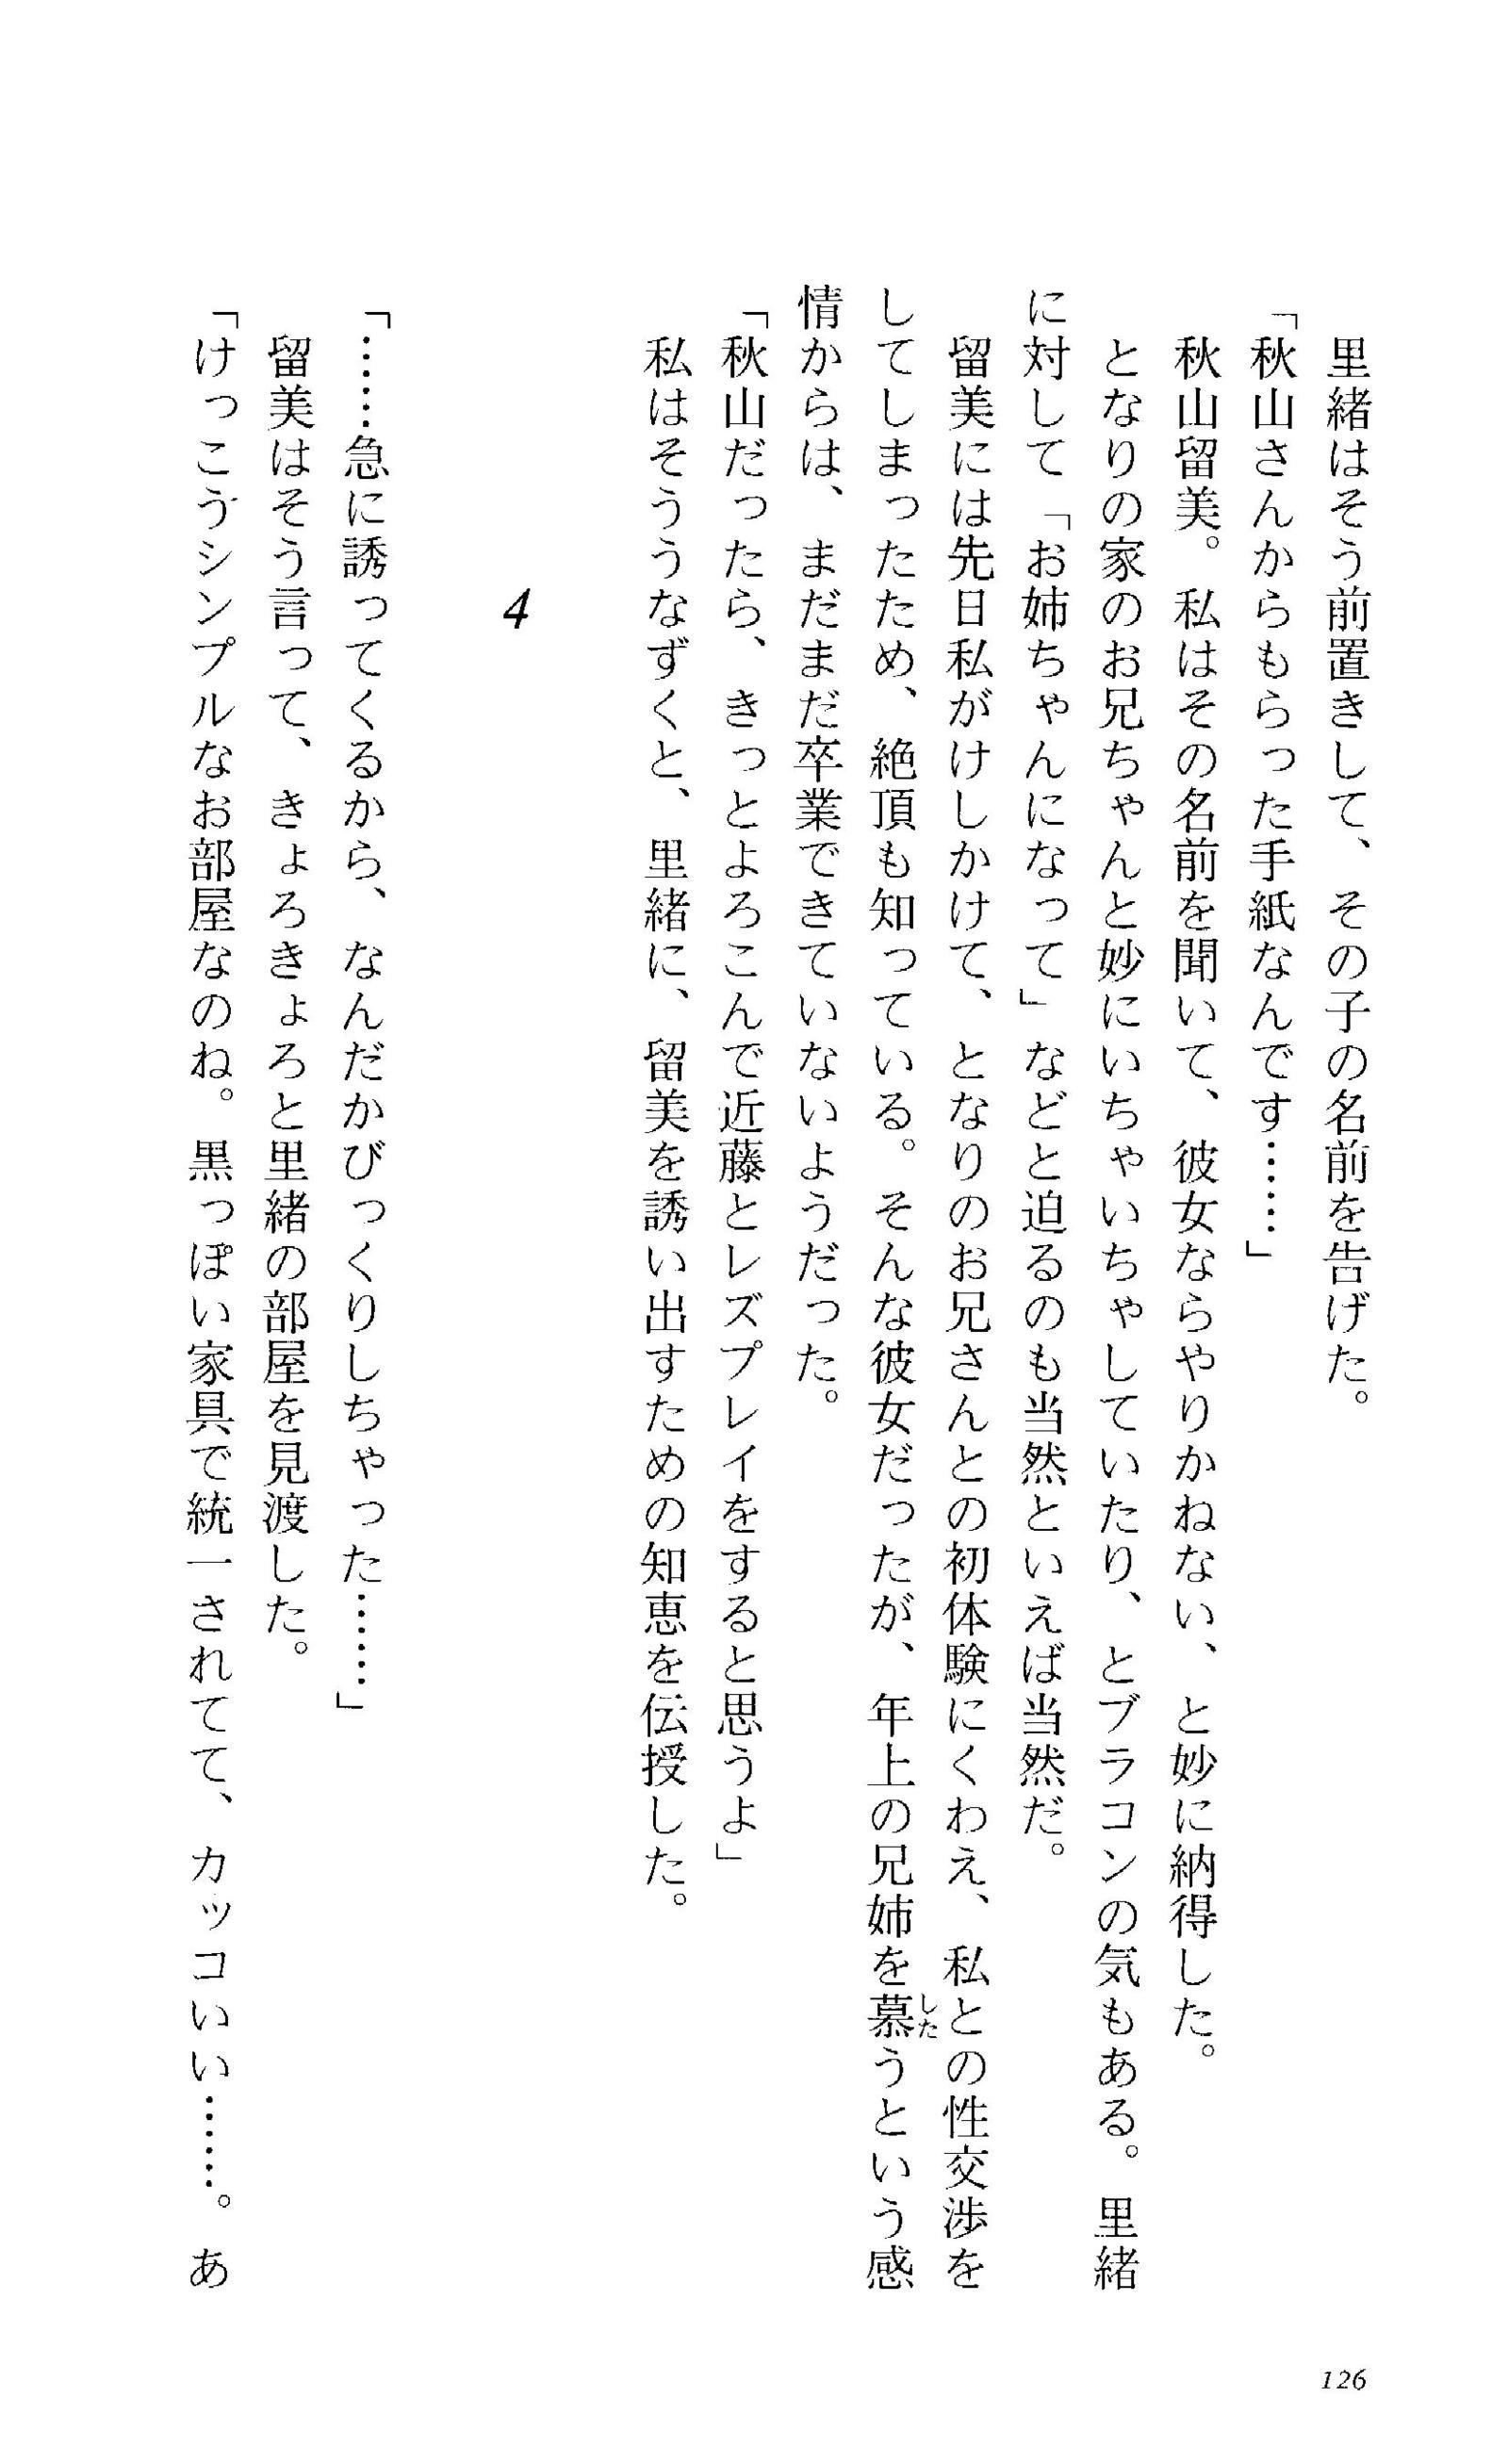 里緒はそう前置きして、その子の名前を告げた。
「秋山さんからもらった手紙なんです……」
秋山留美。私はその名前を聞いて、彼女ならやりかねない、と妙に納得した。
となりの家のお兄ちゃんと妙にいちゃいちゃしていたり、とブラコンの気もある。里緒
に対して「お姉ちゃんになって」などと迫るのも当然といえば当然だ。
留美には先日私がけしかけて、となりのお兄さんとの初体験にくわえ、私との性交渉を
してしまったため、絶頂も知っている。そんな彼女だったが、年上の兄姉を慕うという感
情からは、まだまだ卒業できていないようだった。
「秋山だったら、きっとよろこんで近藤とレズプレイをすると思うよ」
私はそううなずくと、里緒に、留美を誘い出すための知恵を伝授した。
4
「……急に誘ってくるから、なんだかびっくりしちゃった……」
留美はそう言って、きょろきょろと里緒の部屋を見渡した。
「けっこうシンプルなお部屋なのね。黒っぽい家具で統一されてて、カッコいい……。あ
126